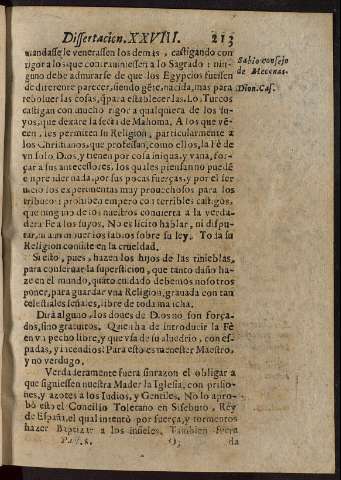 Dissertacion. XXVIII. 213
mandasse le venerassen los demàs, castigando con
rigor a los que contraviniessen a lo Sagrado: nin-
guno debe admirarse de que los Egypcios fuessen
de diferente parecer, siendo gẽte, nacida, mas para
reboluer las cosas, q̃ para establecerlas. Los Turcos
castigan con mucho rigor a qualquiera de los su-
yos, que dexare la secta de Mahoma. A los que vẽ-
cen, les permiten su Religion, particularmente a
los Christianos, que professan, como ellos, la Fè de
vn solo Dios, y tienen por cosa iniqua, y vana, for-
çar a sus antecessores, los quales piensan no puedẽ
emprender nada, por sus pocas fuerças, y por el ser-
uicio los experimentas muy prouechosos para los
tributos: prohiben empero con terribles castigos,
que ninguno de los nuestros conuierta a la verda-
dera Fè a los suyos. No es licito hablar, ni dispu-
tar, ni aun mouerlos labios sobre su ley. Toda su
Religion consiste en la crueldad.
Si esto, pues, hazen los hijos de las tinieblas,
para conseruar la supersticion, que tanto daño ha-
ze en el mundo, quãto cuidado debemos nosotros
poner, para guardar vna Religion, grauada con tan
celestiales señales, libre de toda mãcha.
Dirà alguno, los dones de Dios no son força-
dos, sino gratuitos. Quien ha de introducir la Fè
en vn pecho libre, y que vsa de su aluedrio, con es-
padas, y incendios: Para esto es menester Maestro,
y no verdugo.
Verdaderamente fuera sinrazon el obligar a
que siguiessen nuestra Madre la Iglesia, con prisio-
nes, y azotes a los Iudios, y Gentiles. No lo apro-
bò esto el Concilio Toletano en Sisebuto, Rey
de España, el qual intentò por fuerça, y tormentos
hazer Baptizar a los infieles. Tambien fuera
Part. 1. O 3 da
Sabio consejo
de Mecenas.
Dion. Cas.